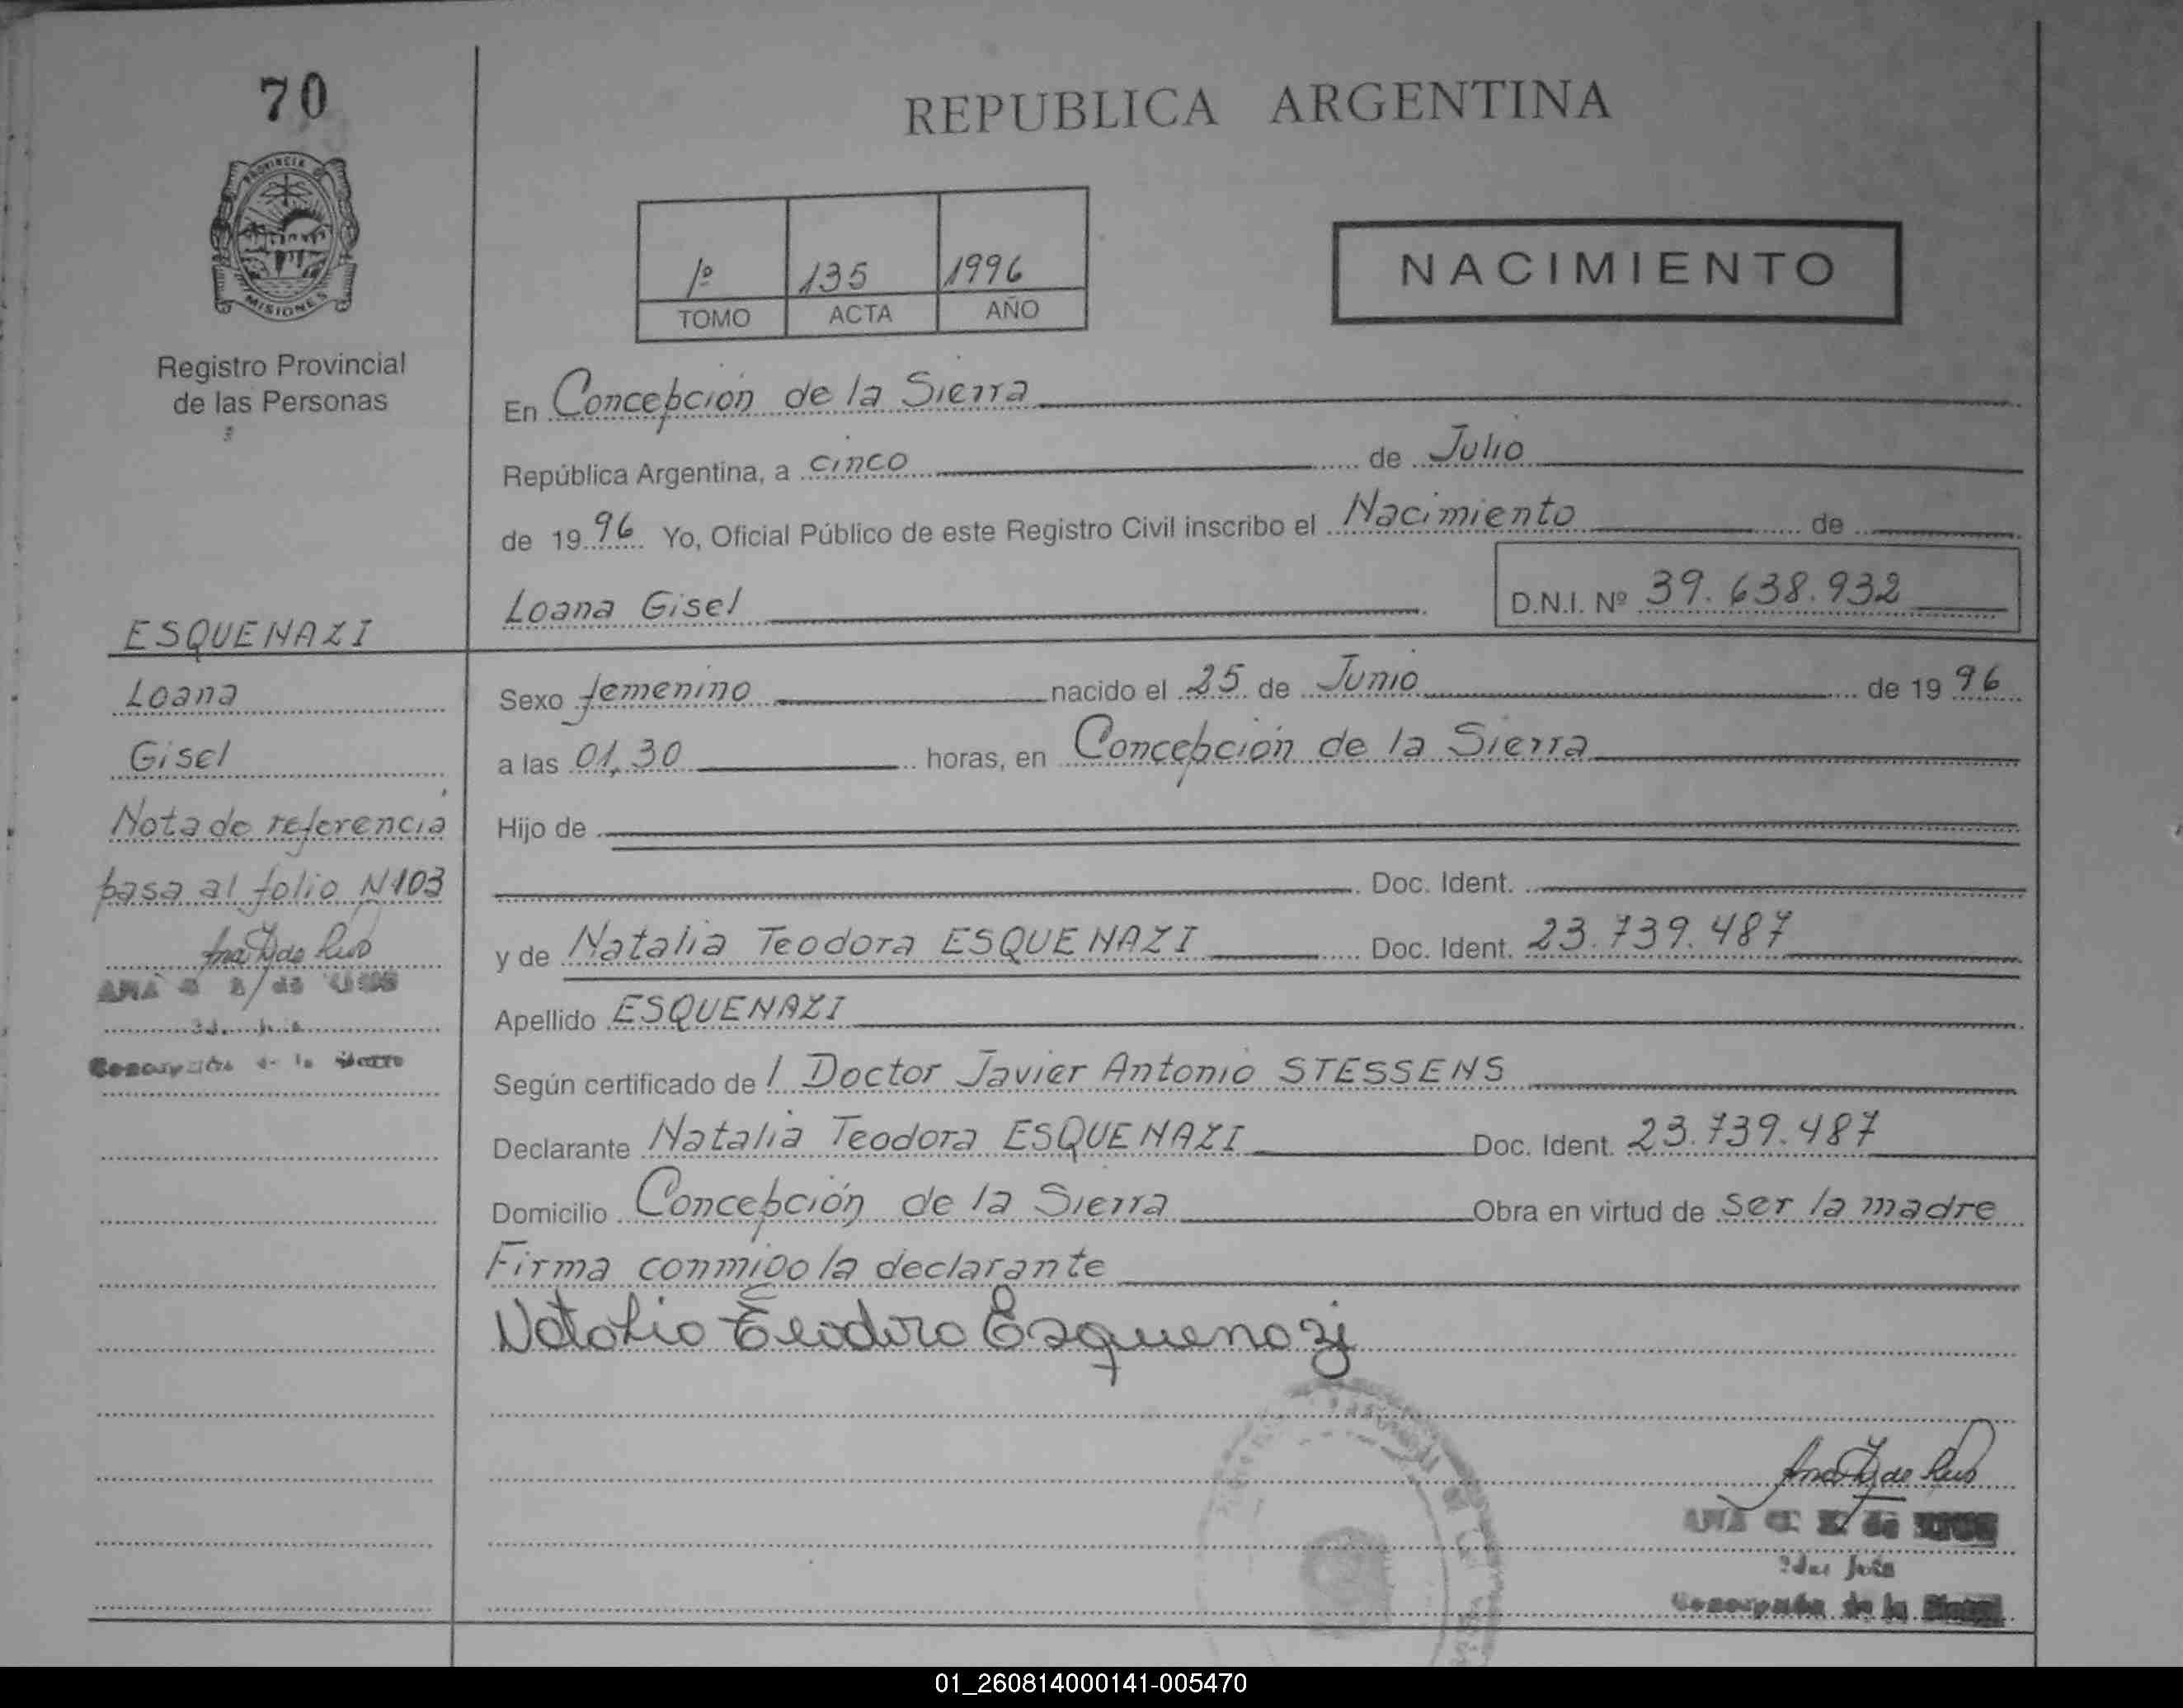 70
PROVINCIA
MISIONES
Registro Provincial
de las Personas
REPUBLICA ARGENTINA
1º 135 1996
TOMO ACTA AÑO
NACIMIENTO
En Concepción de la Sierra
República Argentina, a cinco de Julio
de 19 96 Yo, Oficial Público de este Registro Civil inscribo el Nacimiento de
Loana Gisel D.N.I. Nº 39.638.932
ESQUENAZI
Loana
Gisel
Nota de referencia
pasa al folio N103
Sexo femenino nacido el 25 de Junio de 19 96
a las 01,30 horas, en Concepción de la Sierra
Hijo de
Doc. Ident.
y de Natalia Teodora ESQUENAZI Doc. Ident. 23.739.487
Apellido ESQUENAZI
Según certificado de l Doctor Javier Antonio STESSENS
Declarante Natalia Teodora ESQUENAZI Doc. Ident. 23.739.487
Domicilio Concepción de la Sierra Obra en virtud de ser la madre
Firma conmigo la declarante
Natalia Teodora Esquenazi
de la
01_260814000141-005470